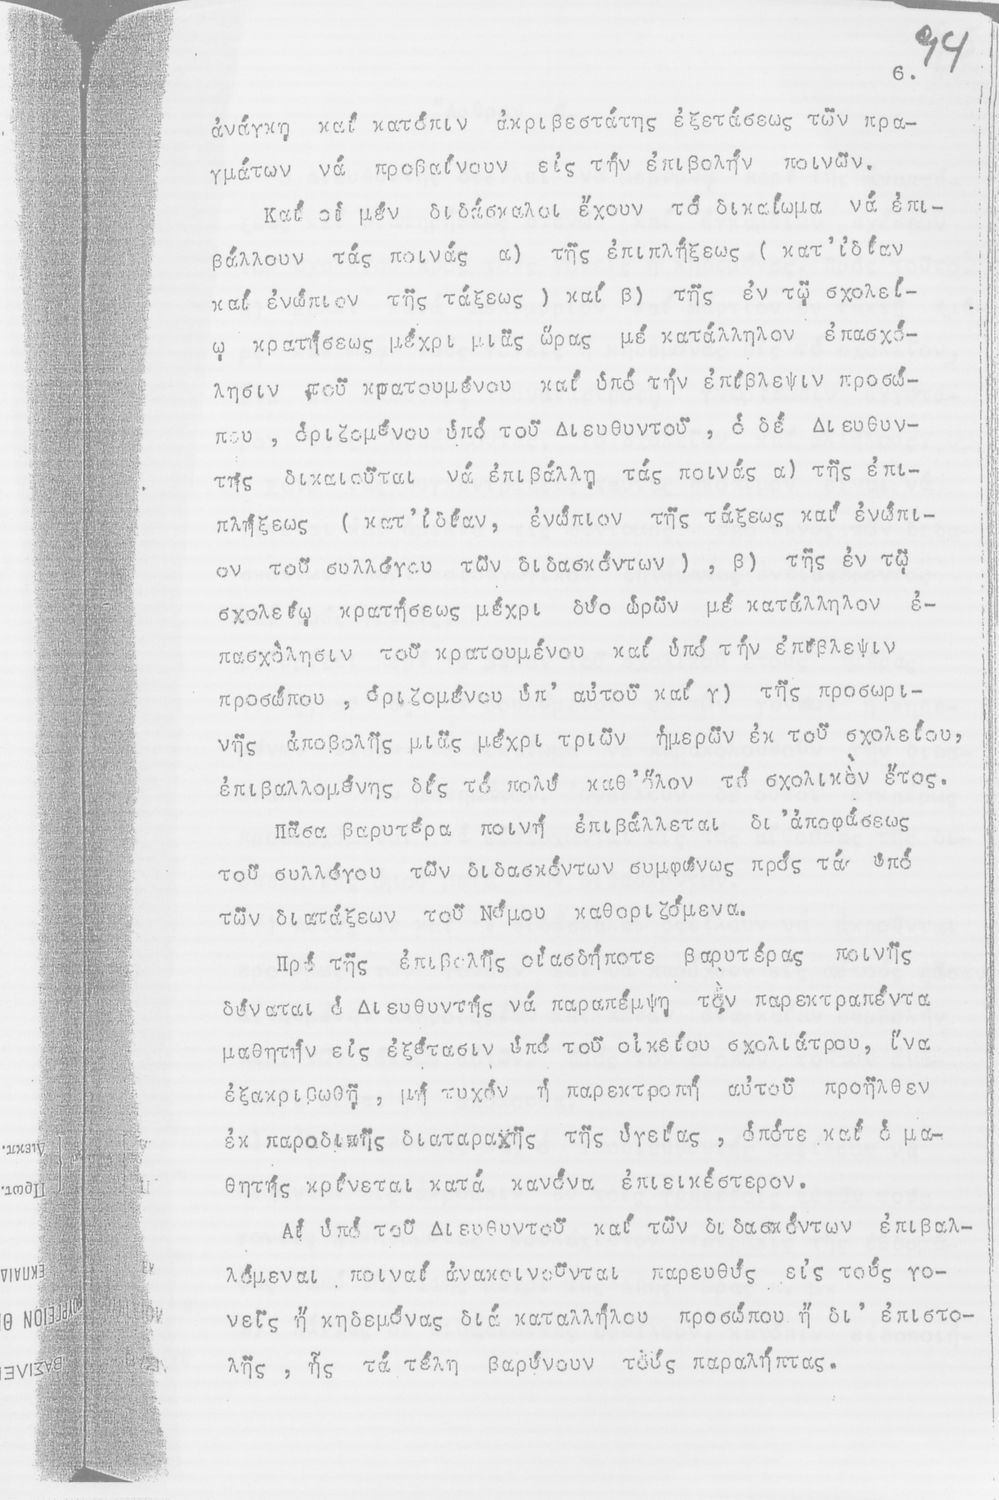 94
6.
ἀνάγκῃ καί κατόπιν ἀκριβεστάτης ἐξετάσεως τῶν πρα-
γμάτων νά προβαίνουν εἰς τήν ἐπιβολήν ποινῶν.
Καί οἱ μέν διδάσκαλοι ἔχουν τό δικαίωμα νά ἐπι-
βάλλουν τάς ποινάς α) τῆς ἐπιπλήξεως ( κατ'ἰδίαν
καί ἐνώπιον τῆς τάξεως ) καί β) τῆς ἐν τῷ σχολεί-
ῳ κρατήσεως μέχρι μιᾶς ὥρας μέ κατάλληλον ἐπασχό-
λησιν τοῦ κρατουμένου καί ὑπό τήν ἐπίβλεψιν προσώ-
που , ὁριζομένου ὑπό τοῦ Διευθυντοῦ , ὁ δέ Διευθυν-
τής δικαιοῦται νά ἐπιβάλλῃ τάς ποινάς α) τῆς ἐπι-
πλήξεως ( κατ'ἰδίαν, ἐνώπιον τῆς τάξεως καί ἐνώπι-
ον τοῦ συλλόγου τῶν διδασκόντων ) , β) τῆς ἐν τῷ
σχολείῳ κρατήσεως μέχρι δύο ὡρῶν μέ κατάλληλον ἐ-
πασχὸλησιν τοῦ κρατουμένου καί ὑπό τήν ἐπίβλεψιν
προσώπου , ὁριζομένου ὑπ' αὐτοῦ καί γ) τῆς προσωρι-
νῆς ἀποβολῆς μιᾶς μέχρι τριῶν ἡμερῶν ἐκ τοῦ σχολείου,
ἐπιβαλλομένης δίς τό πολύ καθ'ὅλον τό σχολικὸν ἔτος.
Πᾶσα βαρυτέρα ποινή ἐπιβάλλεται δι'ἀποφάσεως
τοῦ συλλόγου τῶν διδασκόντων συμφώνως πρός τά ὑπό
τῶν διατάξεων τοῦ Νόμου καθοριζόμενα.
Πρό τῆς ἐπιβολῆς οἱασδήποτε βαρυτέρας ποινῆς
δύναται ὁ Διευθυντής νά παραπέμψῃ τὸν παρεκτραπέντα
μαθητήν εἰς ἐξέτασιν ὑπό τοῦ οἰκείου σχολιάτρου, ἵνα
ἐξακριβωθῇ , μή τυχόν ἡ παρεκτροπή αὐτοῦ προῆλθεν
ἐκ παροδικῆς διαταραχῆς τῆς ὑγείας , ὁπότε καί ὁ μα-
θητής κρίνεται κατά κανόνα ἐπιεικέστερον.
Αἱ ὑπό τοῦ Διευθυντοῦ καί τῶν διδασκόντων ἐπιβαλ-
λόμεναι ποιναί ἀνακοινοῦνται παρευθύς εἰς τούς γο-
νεῖς ἤ κηδεμόνας διά καταλλήλου προσώπου ἤ δι' ἐπιστο-
λῆς , ἧς τά τέλη βαρύνουν τοὺς παραλήπτας.